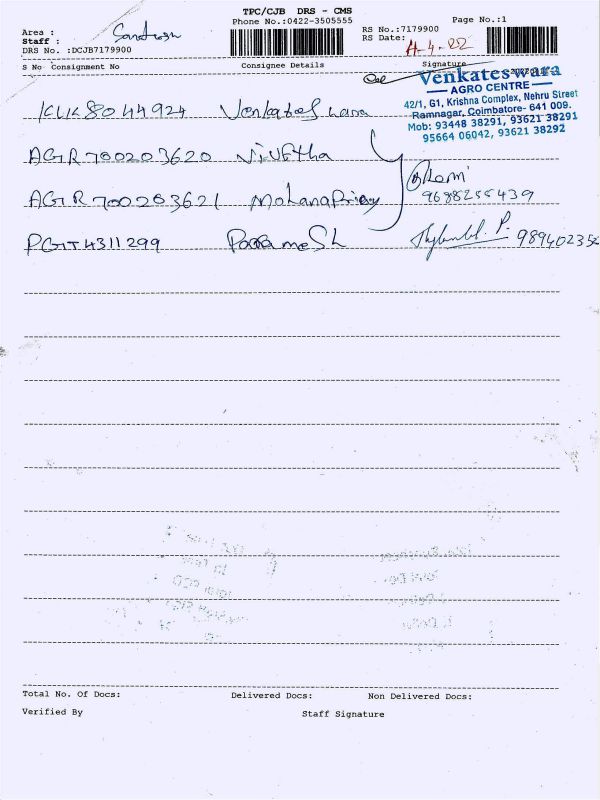 TPC/CJB DRS - CMS
Phone No.:0422-3505555
Page No.:1
Area :
Staff : Santhosh
DRS No. :DCJB7179900
RS No.:7179900
RS Date: 11-4-22
S No Consignment No Consignee Details Signature
Venkateswara
AGRO CENTRE
42/1, G1, Krishna Complex, Nehru Street
Ramnagar, Coimbatore- 641 009.
Mob: 93448 38291, 93621 38291
95664 06042, 93621 38292
KLK 8044924 Venkateshwara
AGR700203620 NivEtha
AGR700203621 MohanaPriay
9688255439
PGT4311299 ParameSh
989402356
Total No. Of Docs: Delivered Docs: Non Delivered Docs:
Verified By Staff Signature